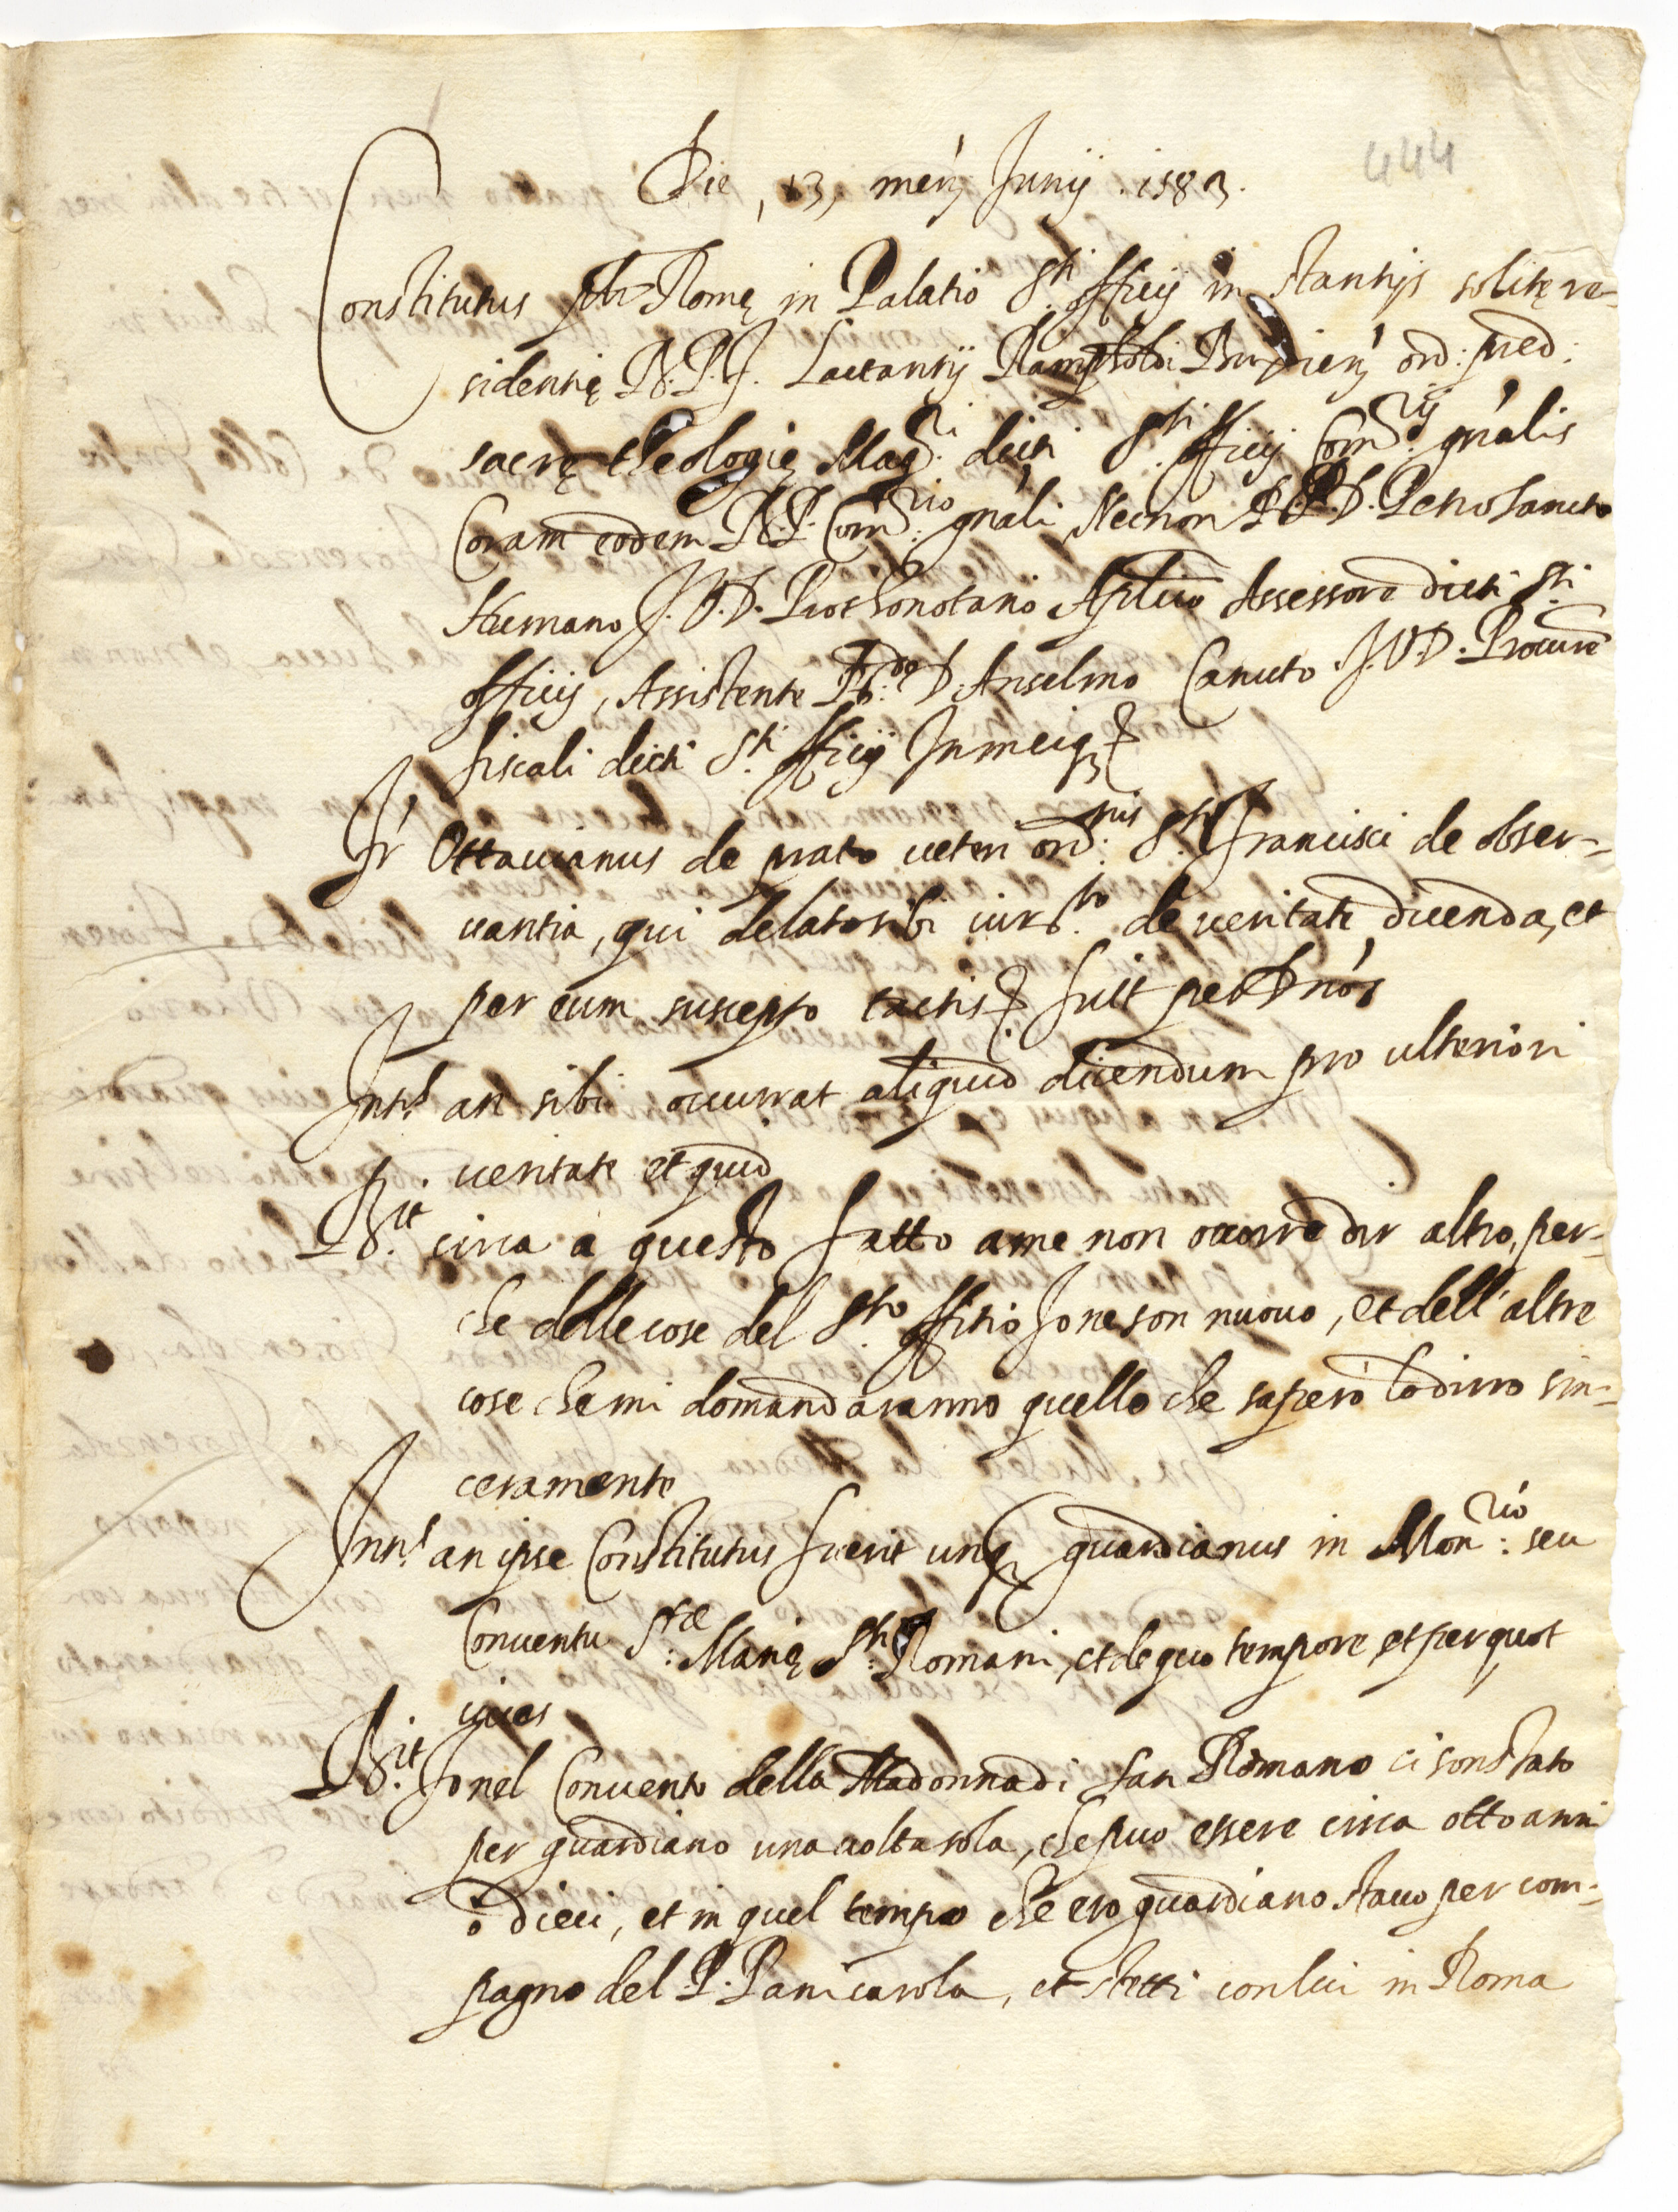 444
Die, 13, meñ Junij . 1583.
Constitutus psñr Romę in Palatio S.ti officij in stantijs solitę re-
sidentię R. P. F. Lactantij ord: pred:
sacrę theologię Mag.ri dicti S.ti officij Com.rij gñalis
Coram eodem R. P. Com.rio gñali, Necnon R. P. D. Petro Sancto
Humano J. V. D. Prothonotario Apl̃ico Assessore dicti S.ti
officij, Assistente R.do D. Anselmo Canuto J. V. D. Procure
fiscali dicti S.ti officij In meiq3
Fr Ottauianus de prato ueteri ord.nis S.ti Francisci de obser-
uantia, qui delato sibi iur.to de ueritate dicenda, et
per eum suscepto tactis fuit per D nos
Int.s an sibi occurrat aliquid dicendum pro ulteriori
ueritate et quid
R.it circa a questo fatto a me non occorre dir altro, per-
che delle cose del S.to offitio Io ne son nuouo, et dell'altre
cose che mi domandaranno quello che saperò lo dirro sin-
ceramente
Int.s an ipse Constitutus fuerit unq3 guardianus in Mon.rio: seu
Conuentu S.tę: Marię S.ti: Romani, et de quo tempore et per quot
uices
R.it Io nel Conuento della Madonna di San Romano ci son stato
per guardiano una uolta sola, che puo essere circa otto anni
ò dieci, et in quel tempo che ero guardiano stauo per com-
pagno del P. Panicarola, et stetti con lui in Roma